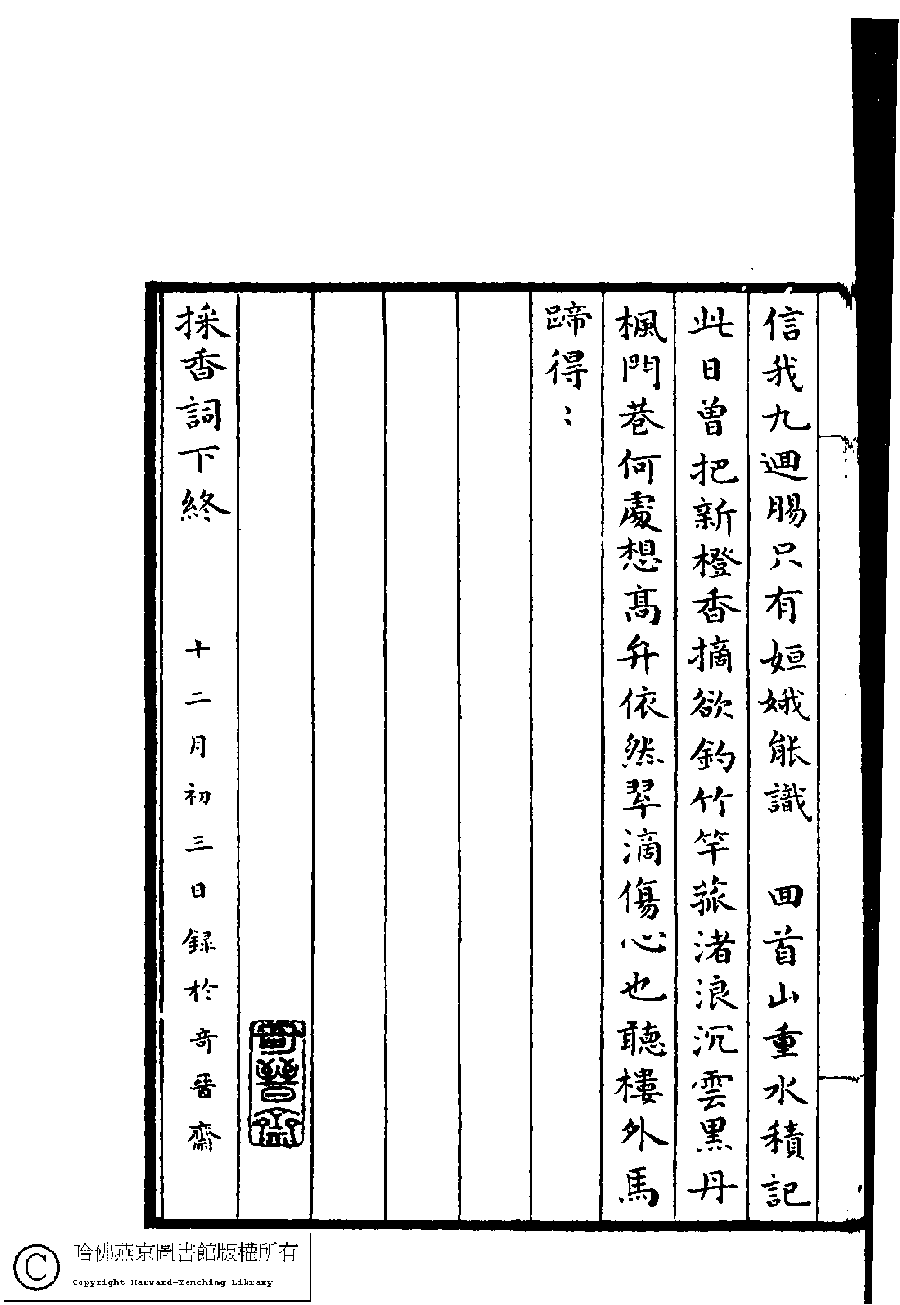 信我九迴腸只有姮娥能識　回首山重水積記
此日曾把新橙香摘欲釣竹竿菰渚浪沉雲黑丹
楓門巷何處想高弁依然翠滴傷心也聽樓外馬
蹄得：
奇晉齋
採香詞下終　十二月初三日録於奇晉齋
哈佛燕京圖書館版權所有
Copyright Harvard-Yenching Library